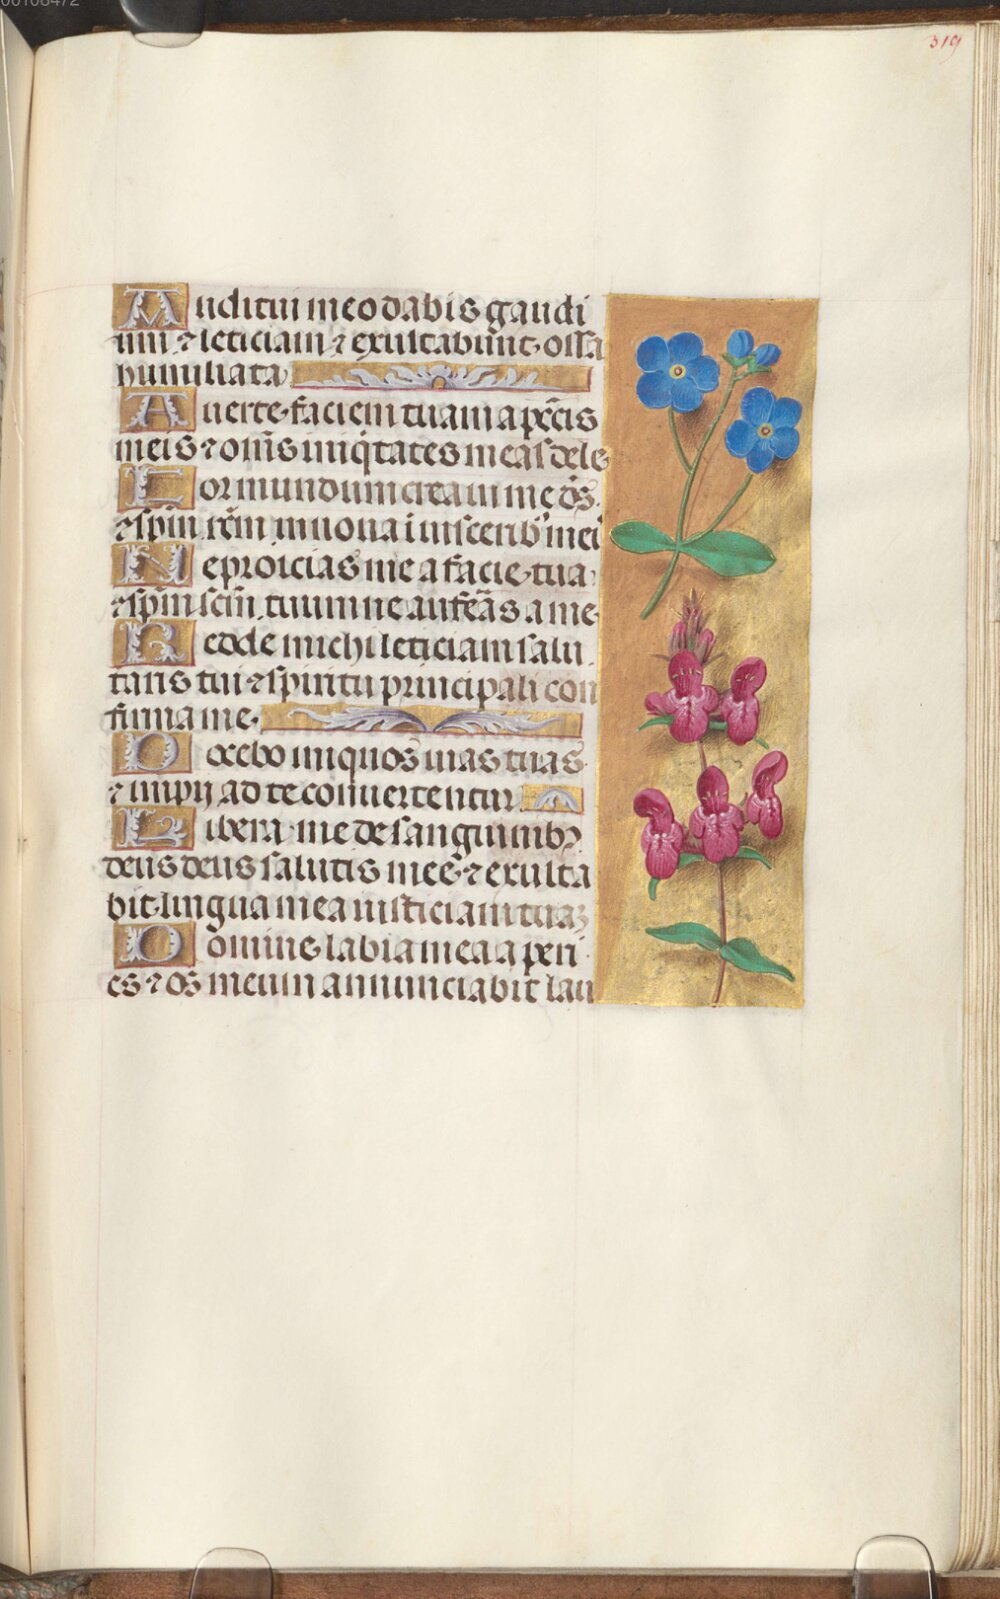 00108472
319
Auditui meo dabis gaudi
um ⁊ leticiam ⁊ exultabunt ossa
humiliata
Auerte faciem tuam a pc̄cis
meis ⁊ om̄s iniq̄tates meas dele
Cor mundum crea in me ds̄
⁊ spm̄ rc̄m innoua ī uisceribꝰ mei
Ne proicias me a facie tua
⁊ spm̄ scm̄ tuum ne auferas a me
Redde michi leticiam salu
taris tui ⁊ spiritu principali con
firma me
Docebo iniquos uias tuas
⁊ impij ad te conuertentur
Libera me de sanguinibꝫ
deus deus salutis mee ⁊ exulta
bit lingua mea iusticiam tuaꝫ
Domine labia mea aperi
es ⁊ os meum annunciabit lau